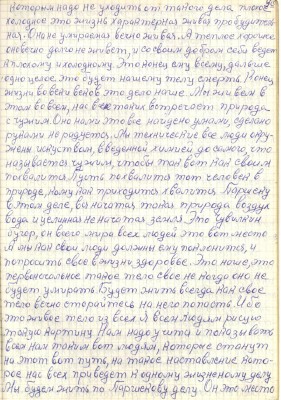 которым надо не уходить от такого дела плохое
холодное это жизнь характерная живая пробудитель
ная. Она не умираемая вечно живая. А теплое хорошее
оно вечно долго не живет, и со своим добром себя ведет
к плохому и холодному. Это конец ему всему, дальше
одно целое это будет нашему телу смерть. Конец
жизни во веки веков это дело наше. Мы живем в
этом во всем, нас всех таких встречает природа
с чужим. Оно нами это все искусно узнато, сделано
руками не родилося. Мы технические все люди окру
жены искусством, введенной химией до самого, что
называется чужим, чтобы так вот нам своим
похвалится. Пусть похвалится тот человек в
природе, кому нам приходится хвалится. Паршеку
в этом деле, во начатая такая природа воздух
вода и условная не начатая земля. Это чувилкин
бугор, он всего мира всех людей это вот место
А мы как свои люди должны ему поклонится, и
попросить свое в жизни здоровье. Это наше, это
первоначальное такое тело свое не когда оно не
будет умирать. Будет жить всегда как свое
тело вечно стороится на него попасть. И об
это живое тело из всех я всем людям рисую
такую картину. Нам надо учится и показывать
всем нам таким вот людям, которые станут
на этот вот путь, на такое наставление кото-
рое нас всех приведет к одному жизненому делу
Мы будем жить по Паршекову делу. Он это место